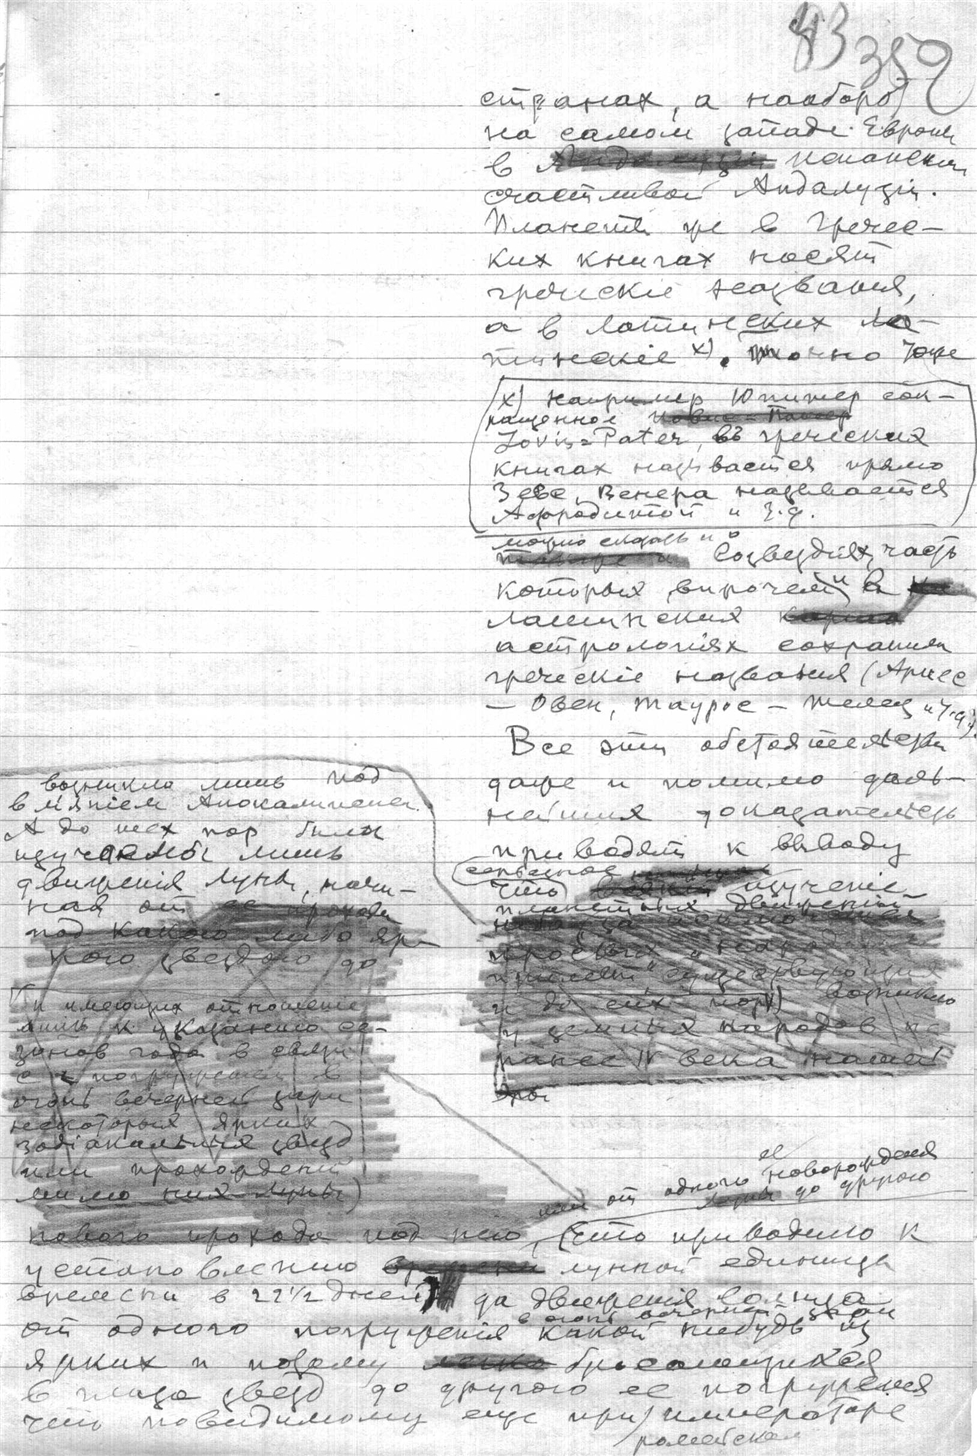 359
странах, а наоборот
на самом западе Европы
в испанской
счастливой Андалузіи.
Планеты же в Гречес-
ких книгах носят
греческіе названія,
а в латинских ла-
тинскіе х). точно тоже
х) например Юпитер сок-
ращенное
Jovis-Pater, въ греческих
книгах называется прямо
Зевс, Венера называется
Афродитой и т.д.
можно сказать и о
созвездіях, часть
которых впрочем и в
латинских
астрологіях сохранили
греческіе названія (Ариес
— Овен, Таурос — Телец и т.д.).
Все эти обстоятельства
даже и помимо даль-
нейших доказательств
приводят к выводу
что серьезное
изученіе
планетных движеній
существующія
и до сих пор) возникло
у земных народов не
ранее IV века нашей
эры
возникло лишь под
вліяніем Апокалипсиса.
А до тех пор были
изучаемы лишь
движенія Луны, начи-
ная от ее прохода
под какой либо яр-
кою звездою до
имеющих отношеніе
лишь к указанію се-
зонов года в связи
с погруженіем в
огонь вечерней зари
некоторых ярких
зодіакальных звезд
или прохожденій
мимо них Луны)
или от одного новорожденія
ее до другого
нового прохода под нею, (что приводило к
установленію лунной единицы
времени в 27½ дней,
да движенія солнца
от одного погруженія какой нибудь из
в огонь вечерней зари
ярких и потому бросающихся
в глаза звезд до другого ее погруженія
что повидимому еще при императоре
ромейском